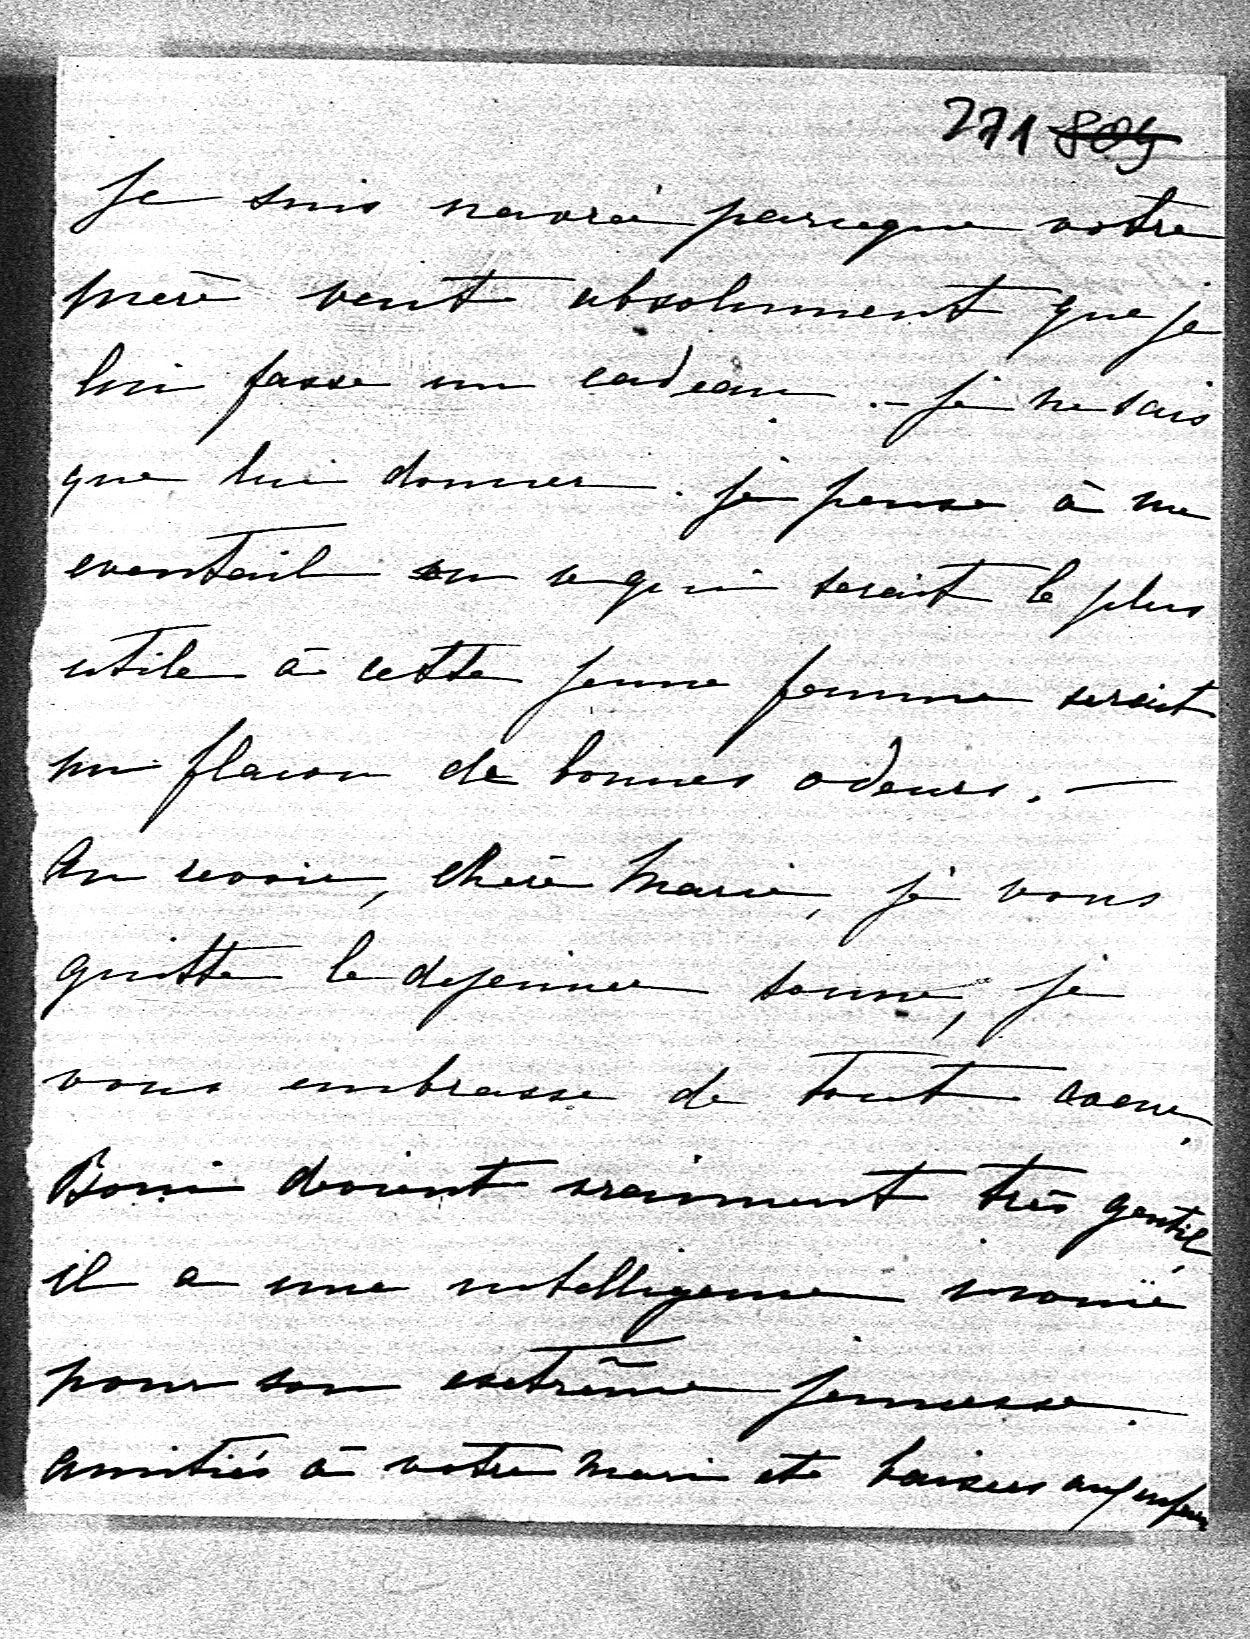 271 809
Je suis navré parceque votre
mère veut absolument que je
lui fasse un cadeau. - je ne sais
que lui donner. je pense à un
eventail ou ce qui serait le plus
utile à cette jeune femme serait
un flacon de bonnes odeurs. -
Au revoir, chère Marie, je vous
quitte le dejeuner sonne, je
vous embrasse de tout coeur.
Boni devient vraiment très gentil,
il a une intelligence inouïe
pour son extrême jeunesse.
Amitiés à votre mari et baisers aux enfants